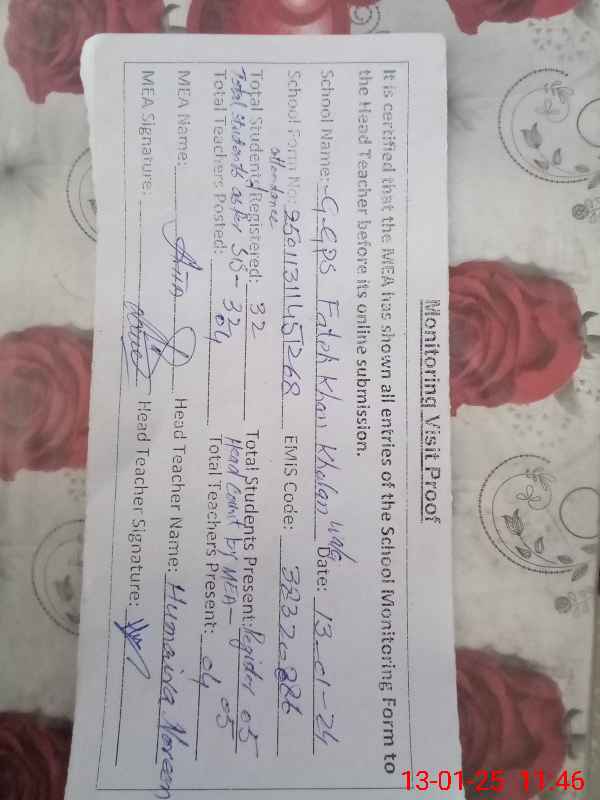 Monitoring Visit Proof
It is certified that the MEA has shown all entries of the School Monitoring Form to
the Head Teacher before its online submission.
School Name: G.GPS Fatoh Khan Kholan wala Date: 13-01-24
School Form No: 25011311451268 EMIS Code: 32320886
attendance
Total Students Registered: 32 Total Students Present: Register 05
Total Students as per SIS - 32 Head Count by MEA - 05
Total Teachers Posted: 04 Total Teachers Present: 04
MEA Name: Head Teacher Name: Humaira Noreen
MEA Signature: Head Teacher Signature:
13-01-25 11.46